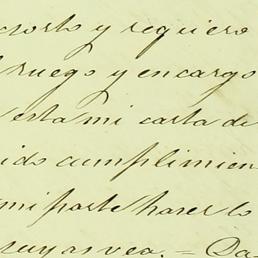 horto y requiero
ruego y encargo
esta mi carta de
ido cumplimien
mi parte hacer lo
cuyas vea. = Da-